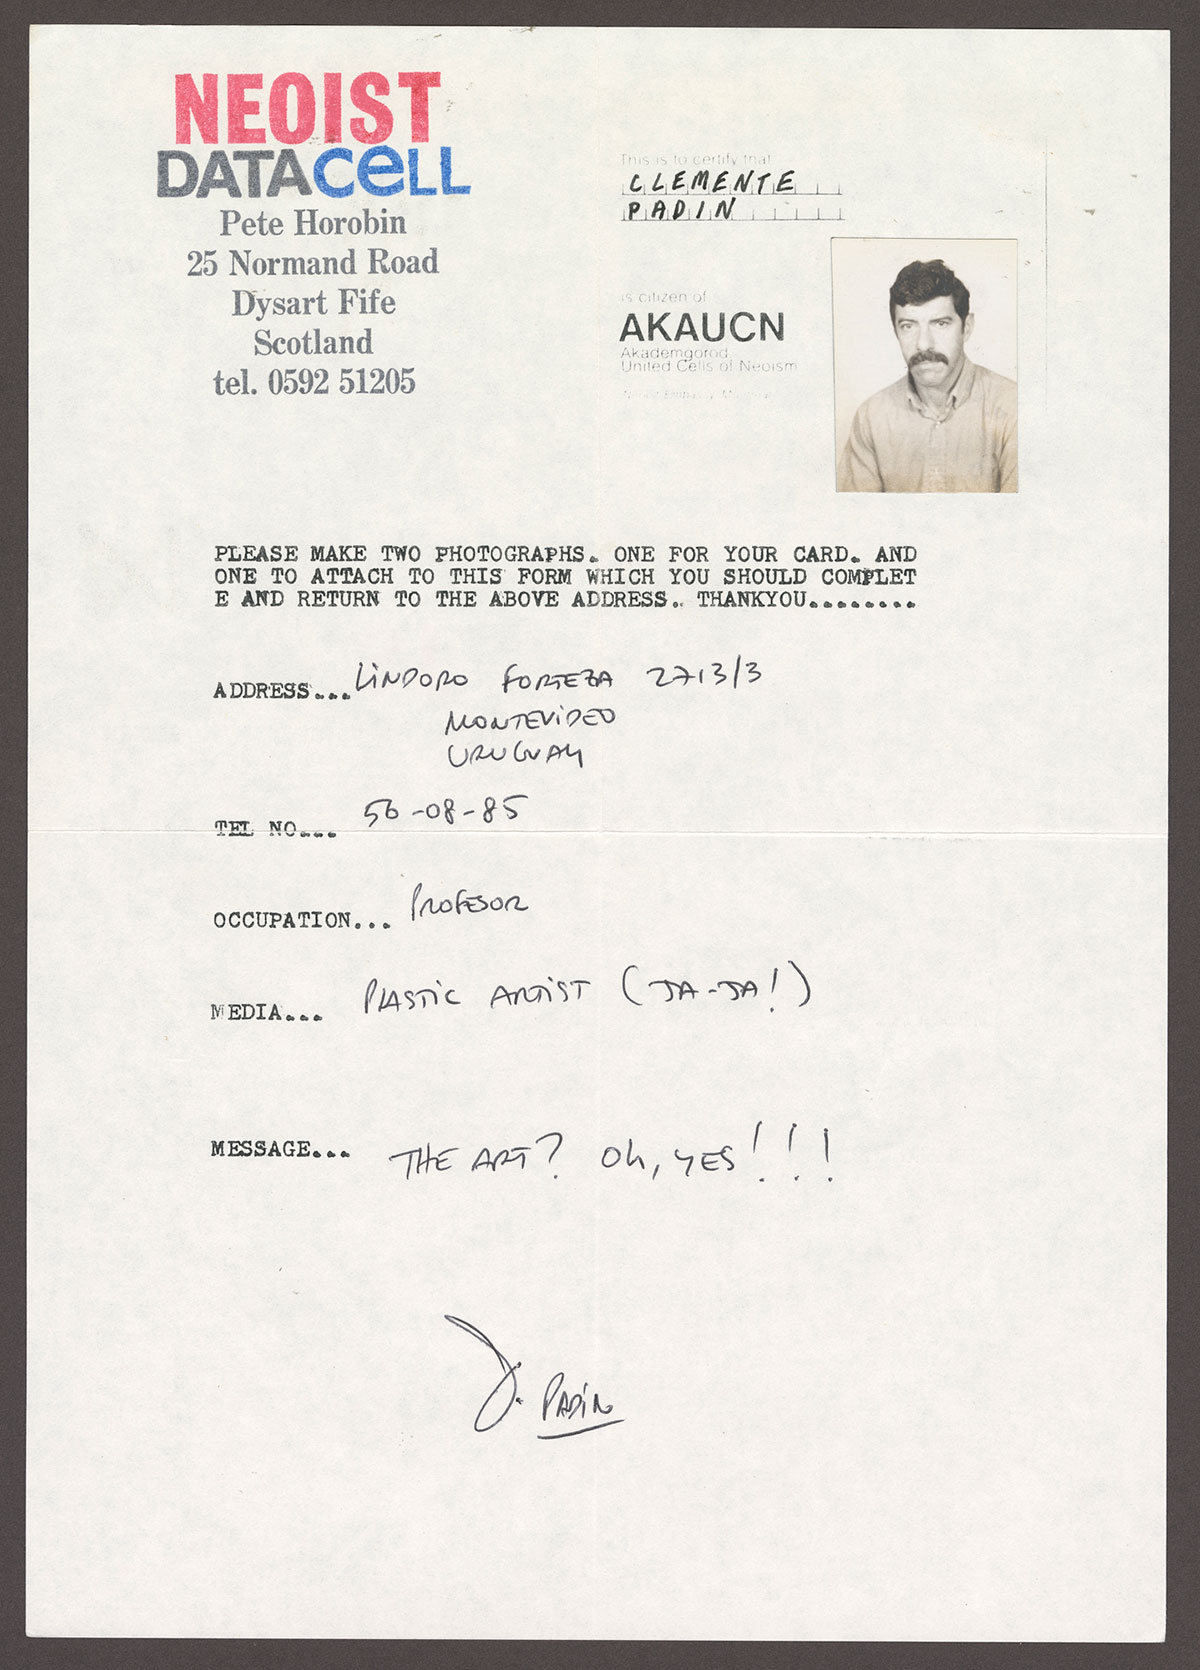 NEOIST
DATACELL
Pete Horobin
25 Normand Road
Dysart Fife
Scotland
tel. 0592 51205
This is to certify that
CLEMENTE
PADIN
is citizen of
AKAUCN
Akademgorod
United Cells of Neoism
PLEASE MAKE TWO PHOTOGRAPHS. ONE FOR YOUR CARD. AND
ONE TO ATTACH TO THIS FORM WHICH YOU SHOULD COMPLET
E AND RETURN TO THE ABOVE ADDRESS. THANKYOU........
ADDRESS... LINDORO FORTEZA 2713/3
MONTEVIDEO
URUGUAY
TEL NO... 56-08-85
OCCUPATION... PROFESOR
MEDIA... PLASTIC ARTIST (JA-JA!)
MESSAGE... THE ART? Oh, YES!!!
PADIN